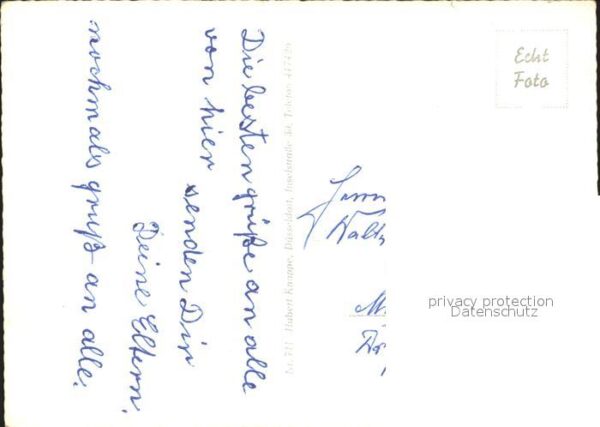 Die besten grüße an alle
von hier senden Dir
Deine Eltern.
nochmals gruß an alle.
Hubert Kampe, Düsseldorf, Inselstraße 34, Telefon 447426
Echt
Foto
privacy protection
Datenschutz